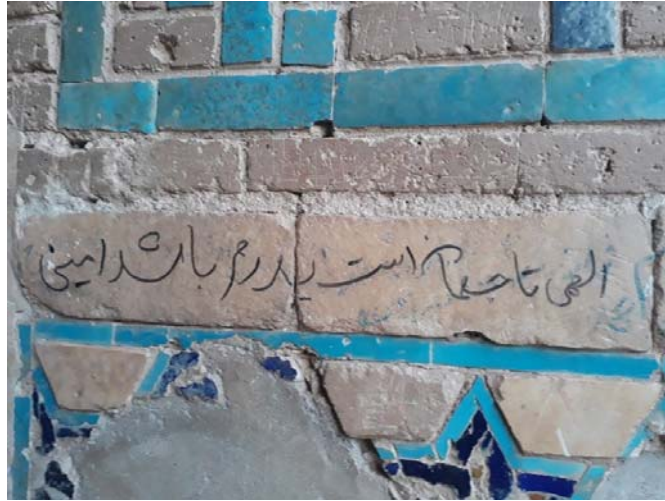 الهی تا جهان است پدرم باشد امینی